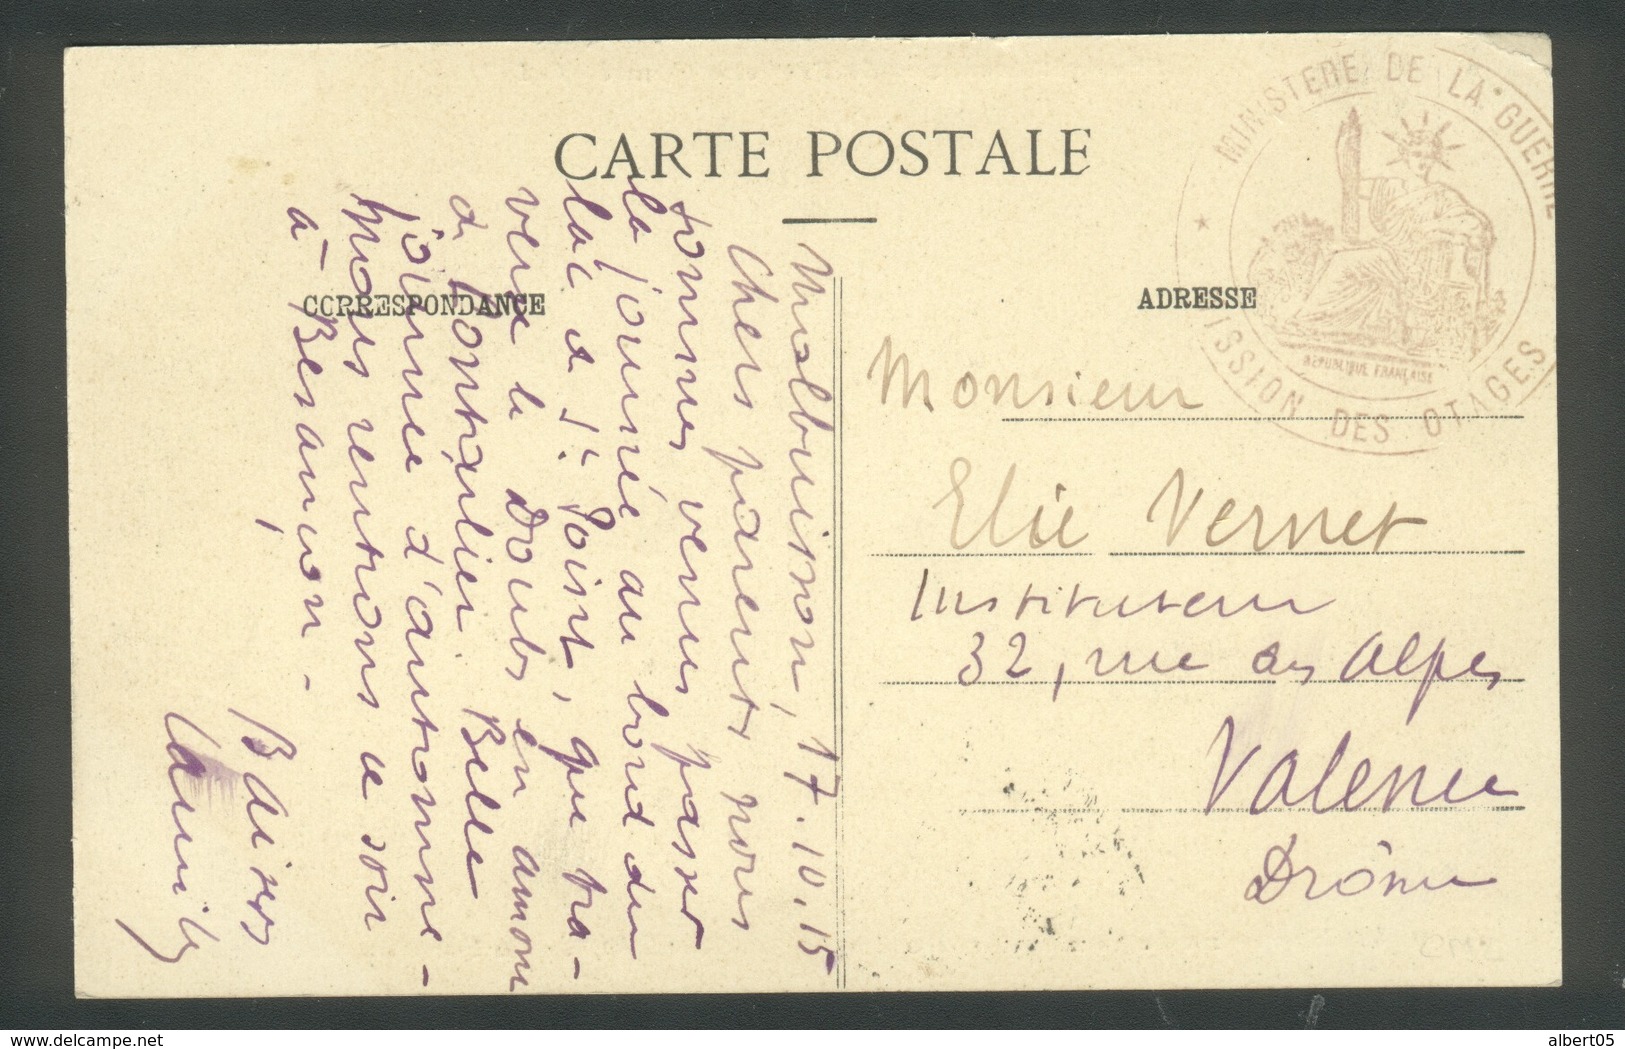 CARTE POSTALE
CORRESPONDANCE
ADRESSE
MINISTERE DE LA GUERRE
ISSION DES OTAGES
REPUBLIQUE FRANÇAISE
Malbuisson, 17.10.15
Chers parents, nous
sommes venus passer
la journée au bord du
lac de St. Point, que tra-
verse le Doubs en amont
de Pontarlier. Belle
journée d'automne -
Nous rentrons ce soir
à Besançon -
Baisers
Monsieur
Elie Vernet
Instituteur
32, rue des Alpes
Valence
Drôme
delcampe.net
albert05